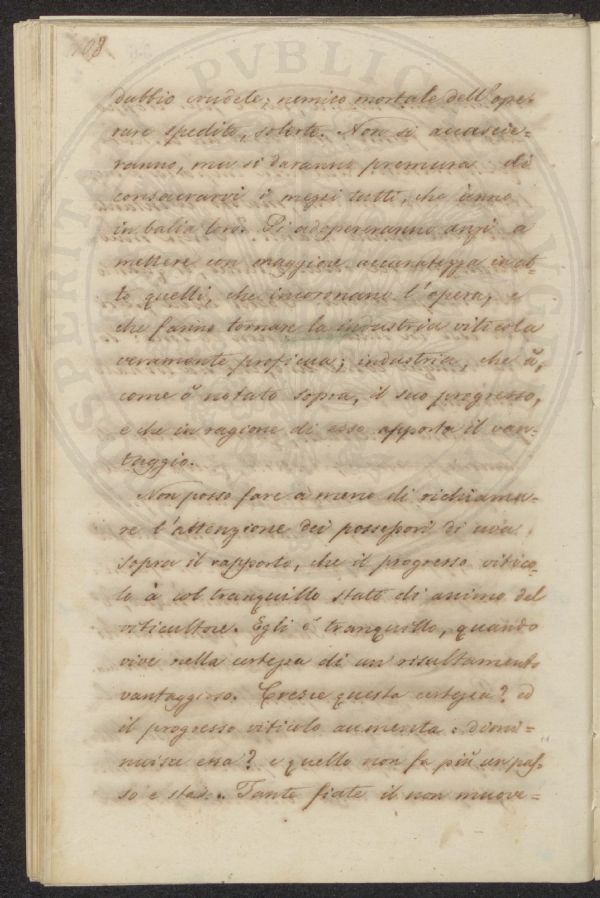 108
dubbio crudele, nemico mortale dell'ope-
rare spedito, solerte. Non si accascie-
ranno, ma si daranno premura di
consacrarvi i mezzi tutti, che ànno
in balia loro. Si adopereranno anzi a
mettere con maggiore accuratezza in at-
to quelli, che incoronano l'opera, e
che fanno tornare la industria viticola
veramente proficua; industria, che à,
come ò notato sopra, il suo progresso,
e che in ragione di esso apporta il van-
taggio.
Non posso fare a meno di richiama-
re l'attenzione dei possessori di uva
sopra il rapporto, che il progresso vitico-
lo à col tranquillo stato di animo del
viticultore. Egli è tranquillo, quando
vive nella certezza di un risultamento
vantaggioso. Cresce questa certezza? ed
il progresso viticolo aumenta: dimi-
nuisce essa? e quello non fa più un pas-
so e sta... Tante fiate il non muove-
PVBLICA